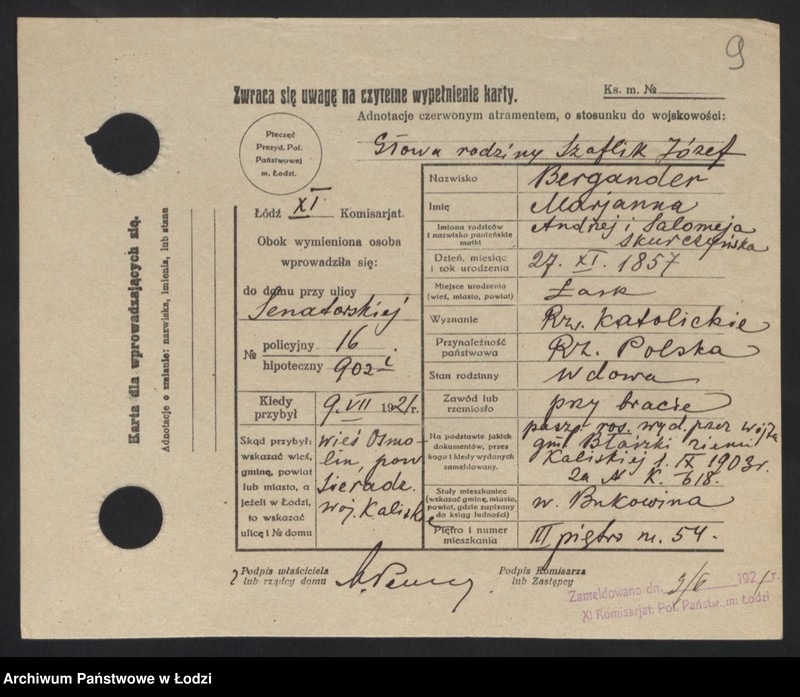 9
Zwraca się uwagę na czytelne wypełnienie karty.
Ks. m. №
Adnotacje czerwonym atramentem, o stosunku do wojskowości:
Głowa rodziny Szaflik Józef
Pieczęć
Prezyd. Pol.
Państwowej
m. Łodzi.
Łódź XI Komisarjat.
Obok wymieniona osoba
wprowadziła się:
do domu przy ulicy
Senatorskiej
№ policyjny 16
hipoteczny 902 i
Kiedy
przybył
9. VII 1921 r.
Skąd przybył:
wskazać wieś,
gminę, powiat
lub miasto, a
jeżeli w Łodzi,
to wskazać
ulicę i № domu
wieś Osmo-
lin, pow
Sieradz.
woj. Kaliskie
Nazwisko
Bergander
Imię
Marjanna
Imiona rodziców
i nazwisko panieńskie
matki
Andrzej i Salomeja
Skurczyńska
Dzień, miesiąc
i rok urodzenia
27. XI. 1857
Miejsce urodzenia
(wieś, miasto, powiat)
Łask
Wyznanie
Rz. Katolickie
Przynależność
państwowa
Rz. Polska
Stan rodzinny
Wdowa
Zawód lub
rzemiosło
przy bracie
Na podstawie jakich
dokumentów, przez
kogo i kiedy wydanych
zameldowany.
paszp. ros. wyd. przez wójta
gm. Błaszki ziemi
Kaliskiej 1. IX 1903 r.
za N K. 618.
Stały mieszkaniec
(wskazać gminę, miasto,
powiat, gdzie zapisany
do ksiąg ludności)
w. Bukowina
Piętro i numer
mieszkania
III piętro m. 54.
Podpis właściciela
lub rządcy domu
Podpis Komisarza
lub Zastępcy
Zameldowano dn. 192 r.
XI Komisarjat Pol. Państw. m. Łodzi
Karta dla wprowadzających się.
Adnotacje o zmianie: nazwiska, imienia, lub stanu
Archiwum Państwowe w Łodzi